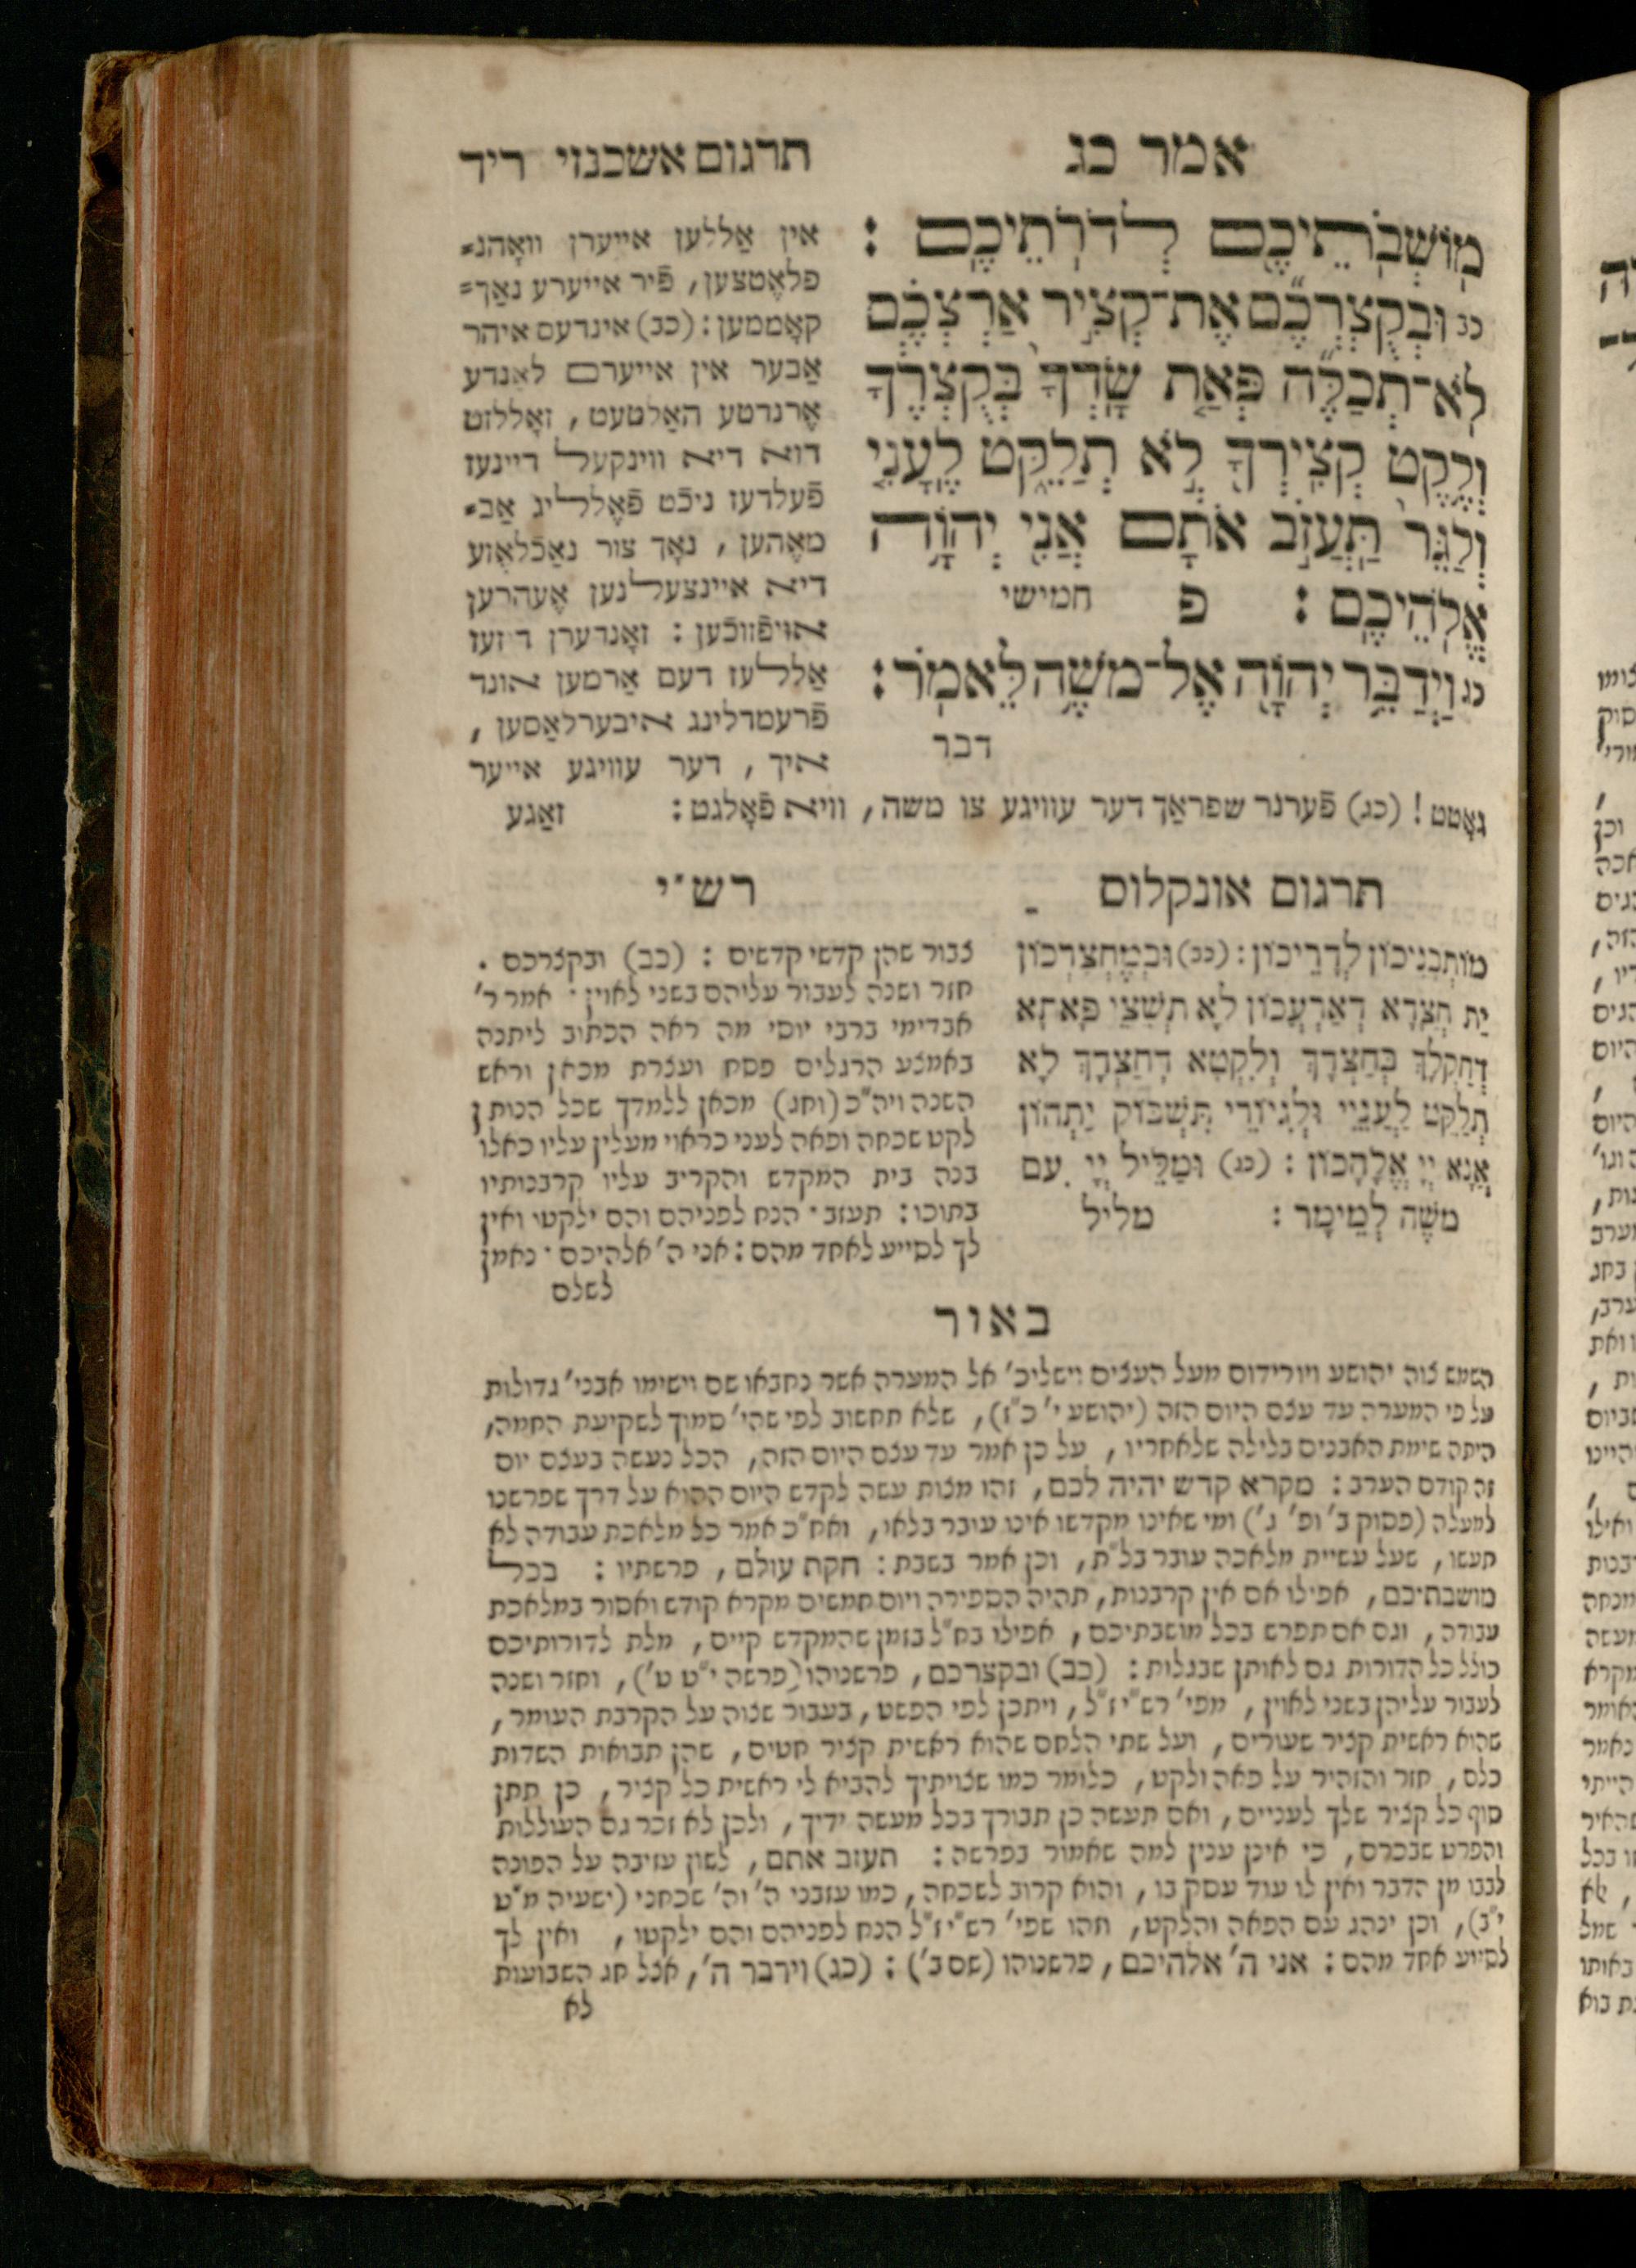 אמר כג
תרגום אשכנזי ריד
מוֹשְׁבֹתֵיכֶם לְדֹרֹתֵיכֶם :
כב וּבְקֻצְרְכֶם אֶת־קְצִיר אַרְצְכֶם
לֹא־תְכַלֶּה פְּאַת שָׂדְךָ בְּקֻצְרֶךָ
וְלֶקֶט קְצִירְךָ לֹא תְלַקֵּט לֶעָנִי
וְלַגֵּר תַּעֲזֹב אֹתָם אֲנִי יְהוָה
אֱלֹהֵיכֶם : פ חמישי
כג וַיְדַבֵּר יְהוָה אֶל־מֹשֶׁה לֵּאמֹר :
דבר
אין אַללען אייערן וואָהנ=
פלאֶטצען, פֿיר אייערע נאַך=
קאָממען : (כב) אינדעם איהר
אַבער אין אייערם לאַנדע
אֶרנדטע האַלטעט, זאָללזט
דוא דיא ווינקעל דיינעז
פֿעלדעז ניכֿט פֿאֶלליג אַב=
מאֶהען, נאָך צור נאַכֿלאֶזע
דיא איינצעלנען אֶעהרען
אויפֿזוכֿען : זאָנדערן דיזעז
אַללעז דעם אַרמען אונד
פֿרעמדלינג איבערלאַסען,
איך, דער עוויגע אייער
גאָטט ! (כג) פֿערנר שפראַך דער עוויגע צו משה, וויא פֿאָלגט : זאַגע
תרגום אונקלוס
מוֹתְבְנֵיכוֹן לְדָרֵיכוֹן : (כב) וּבְמֶחְצַדְכוֹן
יַת חֲצָדָא דְאַרְעֲכוֹן לָא תְשֵׁצֵי פָּאתָא
דְחַקְלָךְ בְּחַצְדָךְ וְלִקְטָא דַחֲצָדָךְ לָא
תְלַקֵּט לְעַנְיֵי וּלְגִיּוֹרֵי תִּשְׁבּוֹק יַתְהוֹן
אֲנָא יְיָ אֱלָהֲכוֹן : (כג) וּמַלֵּיל יְיָ עִם
מֹשֶׁה לְמֵימָר : מליל
רש"י
צבור שהן קדשי קדשים : (כב) ובקצרכם .
חזר ושנה לעבור עליהם בשני לאוין · אמר ר'
אבדימי ברבי יוסי מה ראה הכתוב ליתנה
באמצע הרגלים פסח ועצרת מכאן וראש
השנה ויה"כ (וחג) מכאן ללמדך שכל הנותן
לקט שכחה ופאה לעני כראוי מעלין עליו כאלו
בנה בית המקדש והקריב עליו קרבנותיו
בתוכו : תעזב · הנח לפניהם והם ילקטו ואין
לך לסייע לאחד מהם : אני ה' אלהיכם · נאמן
לשלם
באור
השמש צוה יהושע ויורידום מעל העצים וישליכ' אל המערה אשר נחבאו שם וישימו אבני' גדולות
על פי המערה עד עצם היום הזה (יהושע י' כ"ז), שלא תחשוב לפי שהי' סמוך לשקיעת החמה,
היתה שימת האבנים בלילה שלאחריו, על כן אמר עד עצם היום הזה, הכל נעשה בעצם יום
זה קודם הערב : מקרא קדש יהיה לכם, זהו מצות עשה לקדש היום ההוא על דרך שפרשנו
למעלה (פסוק ב' ופ' ג') ומי שאינו מקדשו אינו עובר בלאו, ואח"כ אמר כל מלאכת עבודה לא
תעשו, שעל עשיית מלאכה עובר בל"ת, וכן אמר בשבת : חקת עולם, פרשתיו : בכל
מושבתיכם, אפילו אם אין קרבנות, תהיה הספירה ויום חמשים מקרא קודש ואסור במלאכת
עבודה, וגם אם תפרש בכל מושבתיכם, אפילו בח"ל בזמן שהמקדש קיים, מלת לדורותיכם
כולל כל הדורות גם לאותן שבגלות : (כב) ובקצרכם, פרשנוהו (פרשה י"ט ט'), וחזר ושנה
לעבור עליהן בשני לאוין, מפי' רש"י ז"ל, ויתכן לפי הפשט, בעבור שצוה על הקרבת העומר,
שהוא ראשית קציר שעורים, ועל שתי הלחם שהוא ראשית קציר חטים, שהן תבואות השדות
כלם, חזר והזהיר על פאה ולקט, כלומר כמו שצויתיך להביא לי ראשית כל קציר, כן תתן
סוף כל קציר שלך לעניים, ואם תעשה כן תבורך בכל מעשה ידיך, ולכן לא זכר גם העוללות
והפרט שבכרם, כי אינן ענין למה שאמור בפרשה : תעזב אתם, לשון עזיבה על הפונה
לבבו מן הדבר ואין לו עוד עסק בו, והוא קרוב לשכחה, כמו עזבני ה' וה' שכחני (ישעיה מ"ט
י"ב), וכן ינהג עם הפאה והלקט, וזהו שפי' רש"י ז"ל הנח לפניהם והם ילקטו, ואין לך
לסייע אחד מהם : אני ה' אלהיכם, פרשנוהו (שם ב') : (כג) וידבר ה', אצל חג השבועות
לא